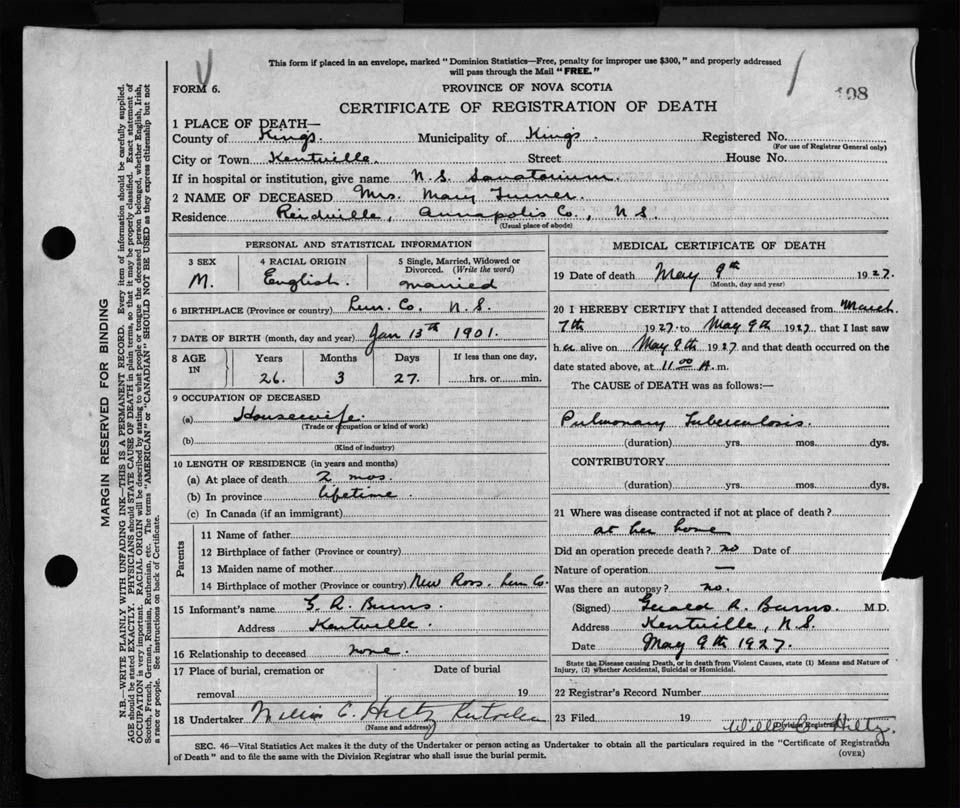 This form if placed in an envelope, marked "Dominion Statistics—Free, penalty for improper use $300," and properly addressed
will pass through the Mail "FREE."
FORM 6.
PROVINCE OF NOVA SCOTIA
108
CERTIFICATE OF REGISTRATION OF DEATH
1 PLACE OF DEATH—
County of Kings. Municipality of Kings. Registered No.
(For use of Registrar General only)
City or Town Kentville. Street House No.
If in hospital or institution, give name N.S. Sanatorium.
2 NAME OF DECEASED Mrs. Mary Turner
Residence Reidville, Annapolis Co., N.S.
(Usual place of abode)
PERSONAL AND STATISTICAL INFORMATION
3 SEX 4 RACIAL ORIGIN 5 Single, Married, Widowed or
Divorced. (Write the word)
M. English. married
6 BIRTHPLACE (Province or country) Lun. Co. N.S.
7 DATE OF BIRTH (month, day and year) Jan 13th 1901.
8 AGE IN Years Months Days If less than one day,
26. 3 27. hrs. or min.
9 OCCUPATION OF DECEASED
(a) Housewife.
(Trade or occupation or kind of work)
(b)
(Kind of industry)
10 LENGTH OF RESIDENCE (in years and months)
(a) At place of death 2 mos.
(b) In province lifetime.
(c) In Canada (if an immigrant)
Parents
11 Name of father
12 Birthplace of father (Province or country)
13 Maiden name of mother
14 Birthplace of mother (Province or country) New Ross. Lun Co.
15 Informant's name G. R. Burns.
Address Kentville.
16 Relationship to deceased none.
17 Place of burial, cremation or Date of burial
removal 19
18 Undertaker Willis C. Hiltz Kentville
(Name and address)
MEDICAL CERTIFICATE OF DEATH
19 Date of death May 9th 1927.
(Month, day and year)
20 I HEREBY CERTIFY that I attended deceased from March
7th 1927 to May 9th 1927, that I last saw
her alive on May 9th 1927 and that death occurred on the
date stated above, at 11.00 A.m.
The CAUSE of DEATH was as follows:—
Pulmonary Tuberculosis.
(duration) yrs. mos. dys.
CONTRIBUTORY
(duration) yrs. mos. dys.
21 Where was disease contracted if not at place of death?
at her home
Did an operation precede death? no Date of
Nature of operation —
Was there an autopsy? no.
(Signed) Gerald R. Burns. M.D.
Address Kentville, N.S.
Date May 9th 1927.
State the Disease causing Death, or in death from Violent Causes, state (1) Means and Nature of
Injury, (2) whether Accidental, Suicidal or Homicidal.
22 Registrar's Record Number
23 Filed 19 Willis C. Hiltz
Division Registrar
SEC. 46—Vital Statistics Act makes it the duty of the Undertaker or person acting as Undertaker to obtain all the particulars required in the "Certificate of Registration
of Death" and to file the same with the Division Registrar who shall issue the burial permit.
(OVER)
MARGIN RESERVED FOR BINDING
N.B.—WRITE PLAINLY WITH UNFADING INK—THIS IS A PERMANENT RECORD. Every item of information should be carefully supplied.
AGE should be stated EXACTLY. PHYSICIANS should STATE CAUSE OF DEATH in plain terms, so that it may be properly classified. Exact statement of
OCCUPATION is very important. RACIAL ORIGIN will be described by stating to what people or tongue the deceased person belonged, whether English, Irish,
Scotch, French, German, Russian, Ruthenian, etc. The terms "AMERICAN" or "CANADIAN" SHOULD NOT BE USED as they express citizenship but not
a race or people. See instructions on back of Certificate.